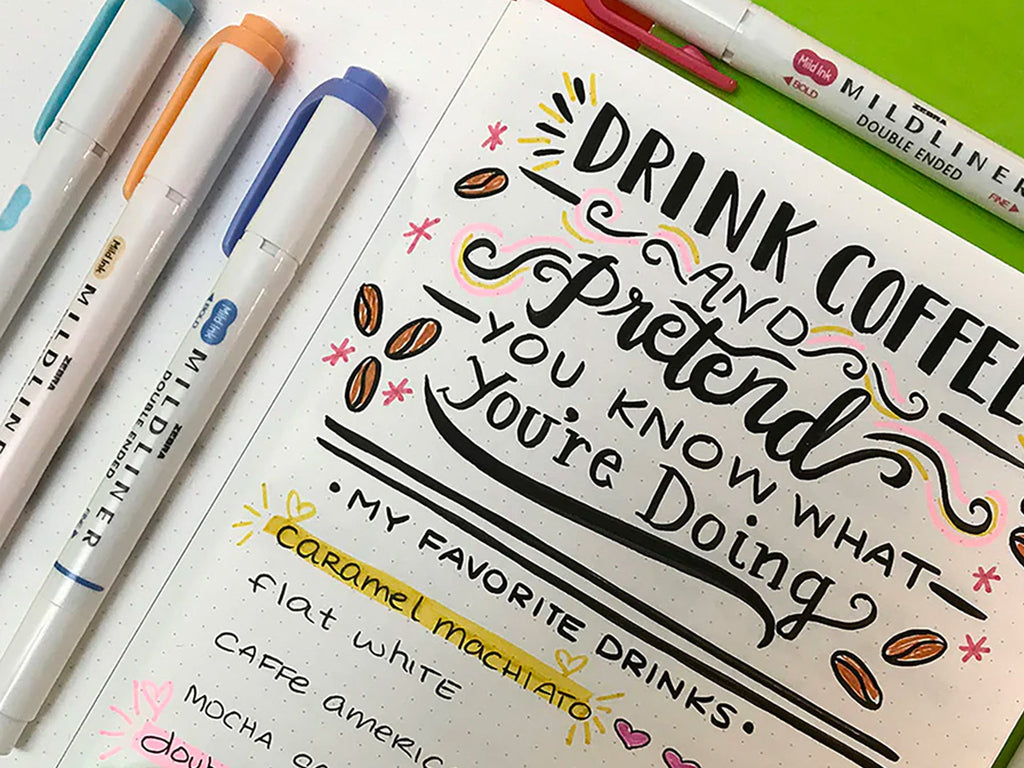 DRINK COFFEE
AND
Pretend
YOU KNOW WHAT
You're Doing
• MY FAVORITE DRINKS •
caramel machiato
flat white
caffe americ
mocha
dou
Mild Ink
BOLD
ZEBRA
MILDLINER
DOUBLE ENDED
FINE
Mild Ink
ZEBRA
MILDLINE
Mild Ink
BOLD
ZEBRA
MILDLINER
DOUBLE ENDED